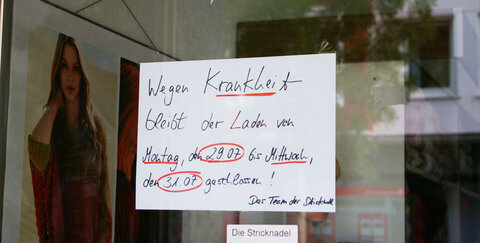 Wegen Krankheit
bleibt der Laden von
Montag, den 29.07 bis Mittwoch,
den 31.07 geschlossen!
Das Team der
Die Stricknadel